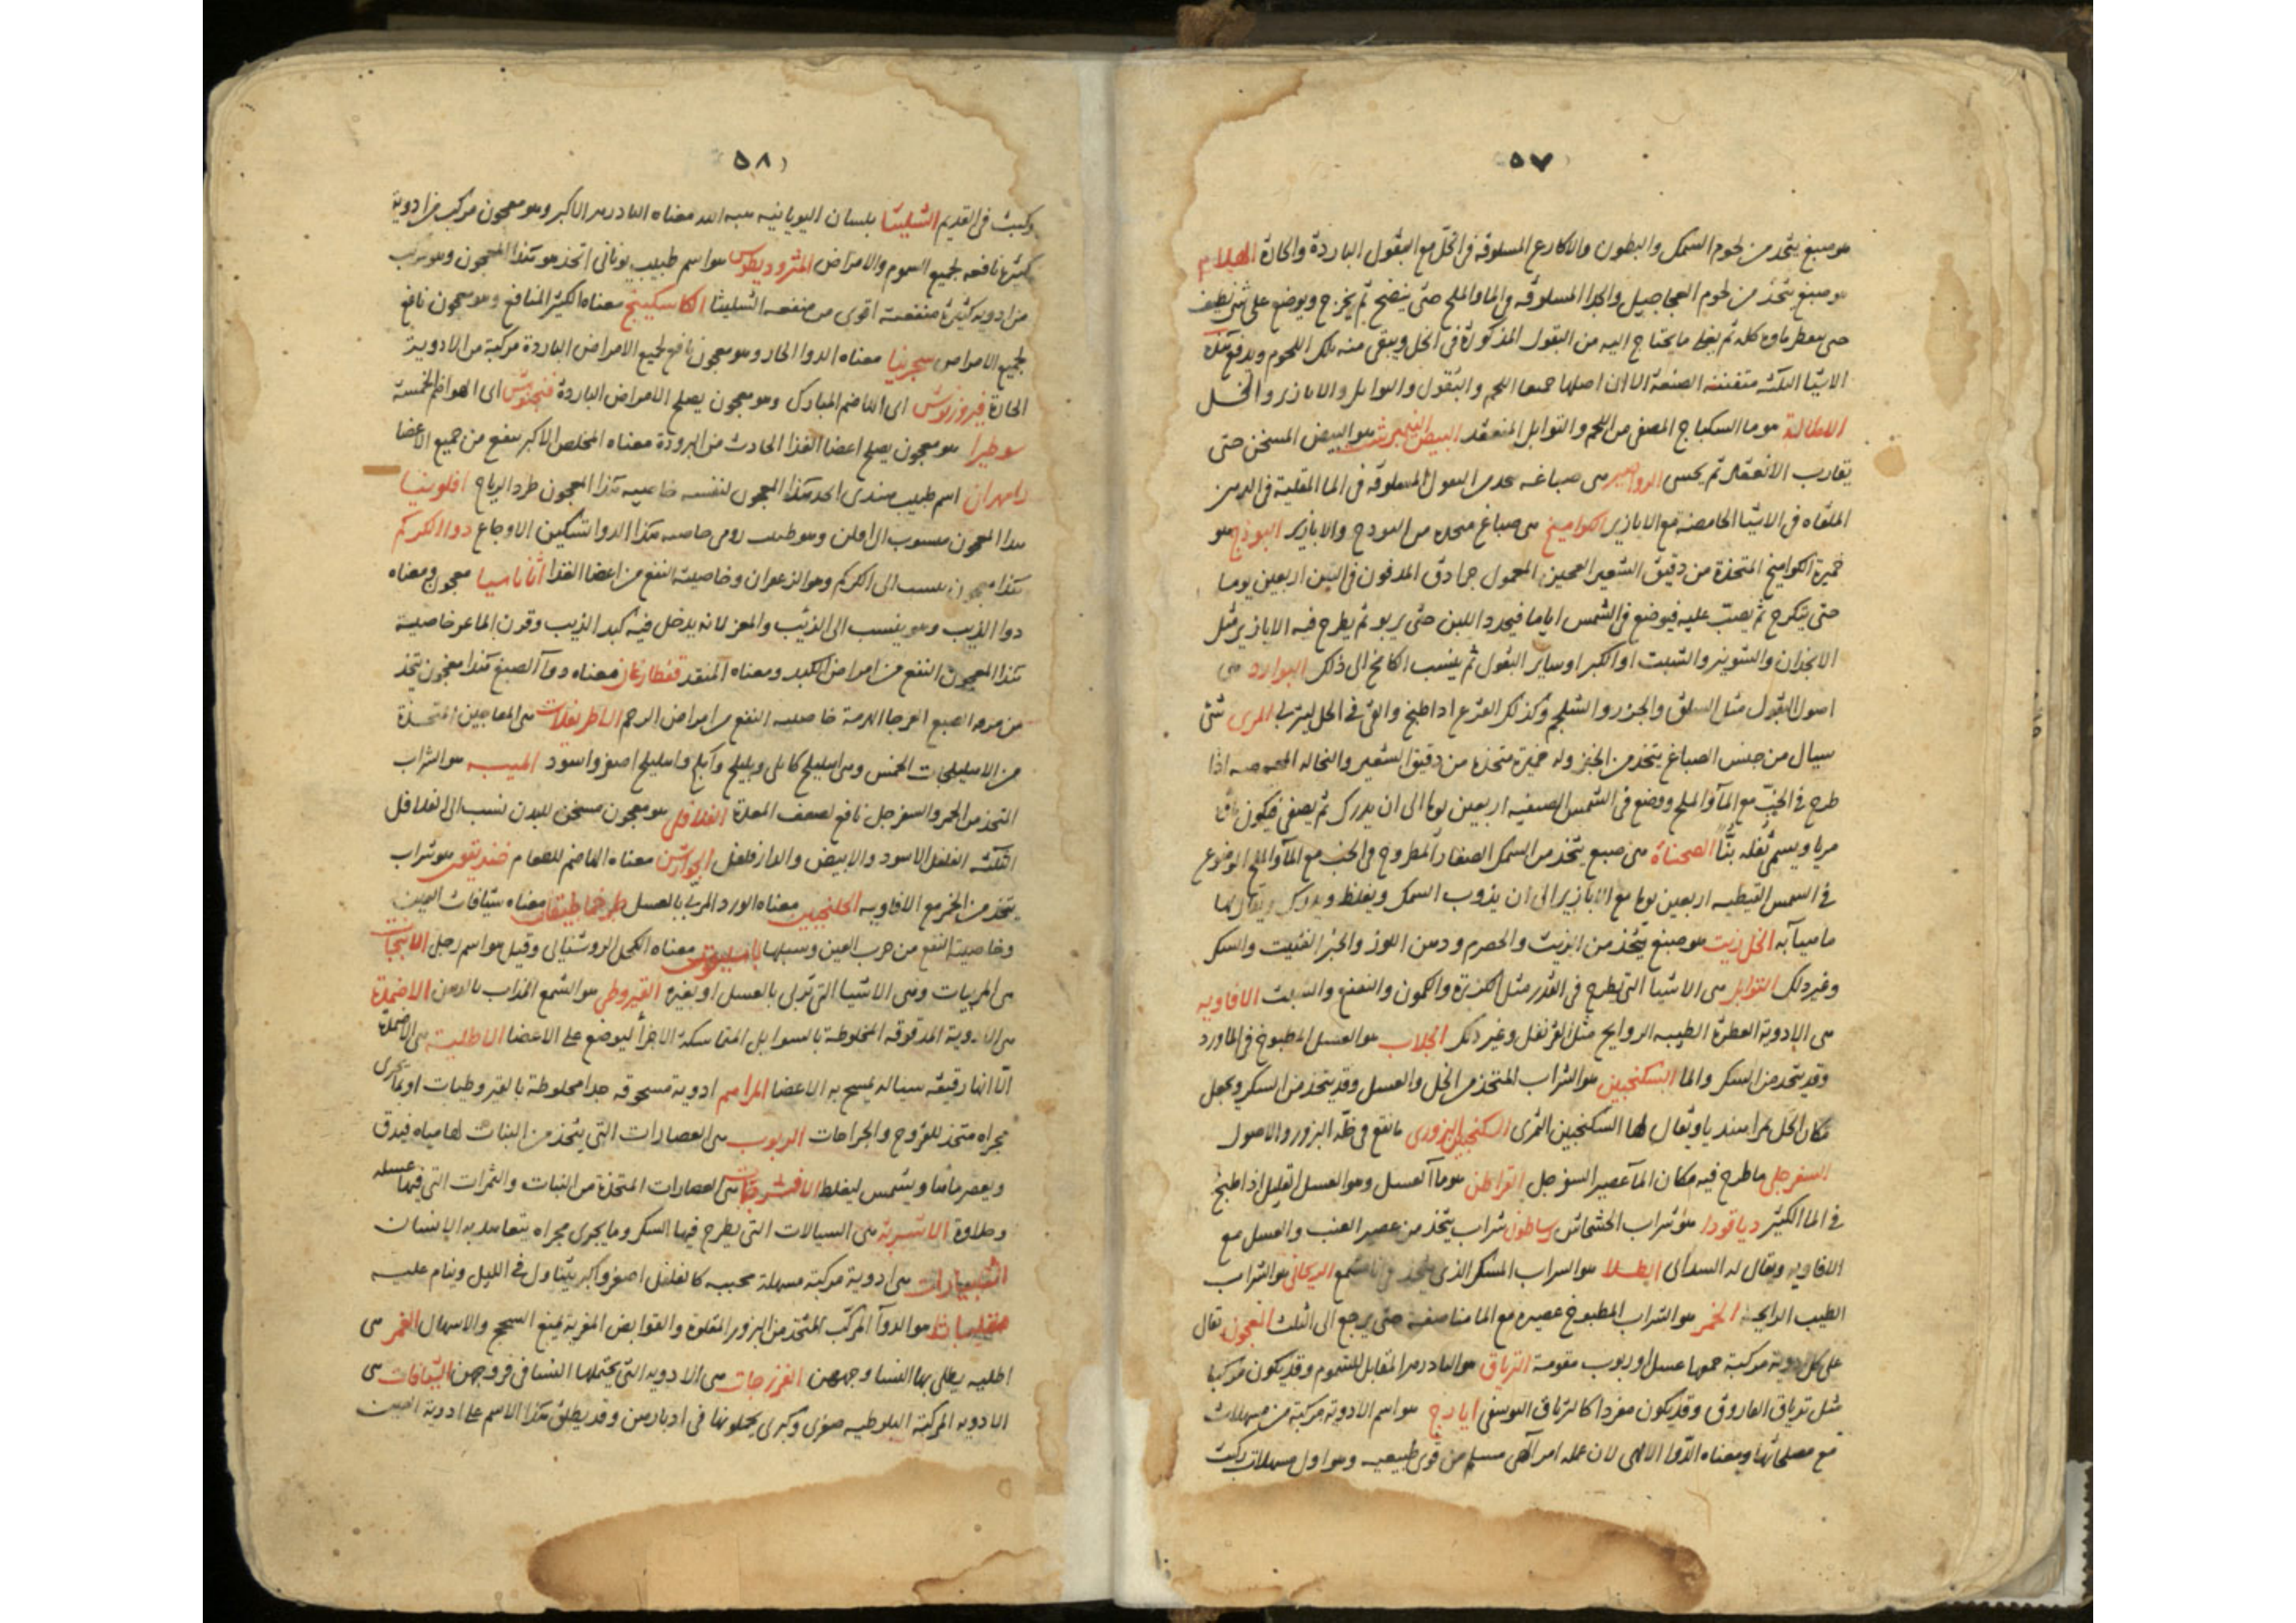 ٥٧
هو صبغ يتخذ من لحوم السمك والبطون والاكارع المسلوقة في الخل مع البقول الباردة والحارة الهلام
هو صبغ يتخذ من لحوم العجاجيل والجدا المسلوقه في الما والملح حتى ينضج ثم يخرج ويوضع على شي نظيف
حتى يقطر ماوه كله ثم يغلى ما يحتاج اليه من البقول المذكورة في الخل ويبقى منه تلك اللحوم وقد تقع هذه
الاشيا الثلثه متفننة الصنعة الا ان اصلها جميعا اللحم والبقول والتوابل والابازير والخل
هو ما السكباج المصفى من اللحم والتوابل المنعقد البيض النيمبرشت هو البيض المسخن حتى
يقارب الانعقاد ثم يحسى هي صباغه من البقول المسلوقة في الما المقلية في الدهن
الملقاه في الاشيا الحامضة مع الابازير الكواميخ هي صباغ متخذه من الفودج والابازير الفوذج هو
خميرة الكواميخ المتخذة من دقيق الشعير العجين المعمول جرادق المدفون في التبن اربعين يوما
حتى يتكرج ثم يصب عليه فيوضع في الشمس اياما فيجدد اللبن حتى يربو ثم يطرح فيه الابازير مثل
الانجدان والشونيز والشبت او الكبر او ساير البقول ثم ينسب الكامخ الى ذلك البوارد هي
اصول البقول مثل السلق والجزر والشلجم وكذلك القرع اذا طبخ والقى في الخل ليتربى المرى شئ
سيال من جنس الصباغ يتخذ من الخبز وله خميرة متخذة من دقيق الشعير والنخاله اذا
طرح في الجب مع المآ والملح ووضع في الشمس الصيفيه اربعين يوما الى ان يدرك ثم يصفى فيكون
مريا ويسمى ثفله بُنًّا الصحناة هي صبغ يتخذ من السمك الصغار المطروح في الجب مع المآ والملح الموضوع
في الشمس القيظيه اربعين يوما مع الابازير الى ان يذوب السمك ويغلظ ويدرك ويقال لها
ماهيآبه الخل زيت هو صبغ يتخذ من الزيت والحصرم ودهن اللوز والخبز الفتيت والسكر
وغير ذلك التوابل هي الاشيا التي تطرح في القدر مثل الكزبرة والكمون والنعنع والشبت الافاويه
هي الادوية العطرة الطيبه الروايح مثل القرنفل وغير ذلك الجلاب هو العسل المطبوخ في الماورد
وقد يتخذ من السكر والما السكنجبين هو الشراب المتخذ من الخل والعسل وقد يتخذ من السكر ويجعل
مكان الخل تمرا هنديا ويقال لها السكنجبين التمرى السكنجبين البزورى ما نقع في خلّه البزور والاصول
السفرجلى ما طرح فيه مكان المآ عصير السفرجل القراطن هو مآ العسل وهو العسل القليل اذا طبخ
في الما الكثير دياقودا هو شراب الخشخاش رساطون شراب يتخذ من عصير العنب والعسل مع
الافاويه ويقال له الطلا هو الشراب المسكر الذى الريحانى هو الشراب
الطيب الرايحة الخمر هو الشراب المطبوخ عصيره مع الما مناصفة حتى يرجع الى الثلث المعجون يقال
على كل ادوية مركبة جمعها عسل او ربوب مقومة الترياق هو البادزهر المقابل للسموم وقد يكون مركبا
مثل ترياق الفاروق وقد يكون مفردا كالترياق ايارج هو اسم الادوية مركبة من مسهلات
مع مصلحاتها ومعناه الدوا الالهى لان عمله امر الهى مسلم من قوى طبيعيه وهو اول مسهلات ركبت
٥٨
وكبيت في القديم الشليثا بلسان اليونانيه معناه البادزهر الاكبر وهو معجون مركب من ادوية
كثيرة نافعه لجميع السموم والامراض المثروديطوس هو اسم طبيب يونانى اتخذ هو هذا المعجون وهو مركب
من ادويه كثيرة منفعته اقوى من منفعه الشليثا الكاسكبينج معناه الكثير المنافع وهو معجون نافع
لجميع الامراض سجرينا معناه الدوا الحار وهو معجون نافع لجميع الامراض الباردة مركبة من الادوية
الحارة فيروزنوش اى الهاضم المبارك وهو معجون يصلح الامراض الباردة فنجنوش اى الهواضم الخمسة
سوطيرا هو معجون يصلح اعضا الغذا الحادث من البرودة معناه المخلص الاكبر ينفع من جميع الاعضا
رامهران اسم طبيب هندى اتخذ هذا المعجون لنفسه خاصيه هذا المعجون طرد الرياح افلونيا
هذا المعجون منسوب الى افلن وهو طبيب رومى خاصيه هذا الدوا تسكين الاوجاع دوا الكركم
هذا معجون ينسب الى الكركم وهو الزعفران وخاصيته النفع من اعضا الغذا اثاناسيا معجون ومعناه
دوا الذيب وهو ينسب الى الذيب والمعز لانه يدخل فيه كبد الذيب وقرن الماعز خاصية
هذا المعجون النفع من امراض الكبد ومعناه المنقذ قفطارغان معناه دوآ الصبغ هذا معجون يتخذ
من خاصيه النفع من امراض الرحم الاطريفلات هي المعاجين المتخذة
من الاهليلجات الخمس وهي اهليلج كابلى وبليلج وآملج واهليلج اصفر واسود الميبه هو الشراب
المتخذ من الخمر والسفرجل نافع لضعف المعدة الفلافلى هو معجون مسخن للبدن نسب الى الفلافل
الثلثه الفلفل الاسود والابيض والدارفلفل الجوارشن معناه الهاضم للطعام خنديقون هو شراب
يتخذ من الخمر مع الافاويه الجلنجبين معناه الورد المربى بالعسل طرخماطيقان معناه شيافات العين
وخاصيته النفع من جرب العين وسبلها باسليقون معناه الكحل الروشنائى وقيل هو اسم رجل الانبجات
هي المربيات وهي الاشيا التي تربى بالعسل او بغيره القيروطى هو الشمع المذاب بالدهن الاضمدة
هي الادوية المدقوقه المخلوطة بالسوايل المتماسكة الاجزأ ليوضع على الاعضا الاطلية هي الاضمدة
الّا انها رقيقه سياله يمسح به الاعضا المراهم ادوية مسحوقه جدا مخلوطة بالقيروطيات او ما يجرى
مجراه متخذ للقروح والجراحات الربوب هي العصارات التي يتخذ من النبات لها مياه فيدق
ويعصر مائها ويشمس ليغلظ الافشرجات هي العصارات المتخذة من النبات والثمرات التي فيها عسله
وحلاوة الاشربة هي السيالات التي يطرح فيها السكر وما يجرى مجراه يتعاهد به الانسان
الشبيارات هي ادوية مركبة مسهلة محببه كالفلفل اصغر واكبر يتناول في الليل وينام عليه
مقلياثا هو الدوآ المركب المتخذ من البزور المقلوة والقوابض المغرية لمنع السحج والاسهال الغمر هي
اطليه يطلى بها النسا وجههن الفرزجات هي الادويه التي يحتملها النسا في فروجهن الشيافات هي
الادويه المركبة البلوطيه صغرى وكبرى يحملونها في ادبارهن وقد يطلق هذا الاسم على ادوية